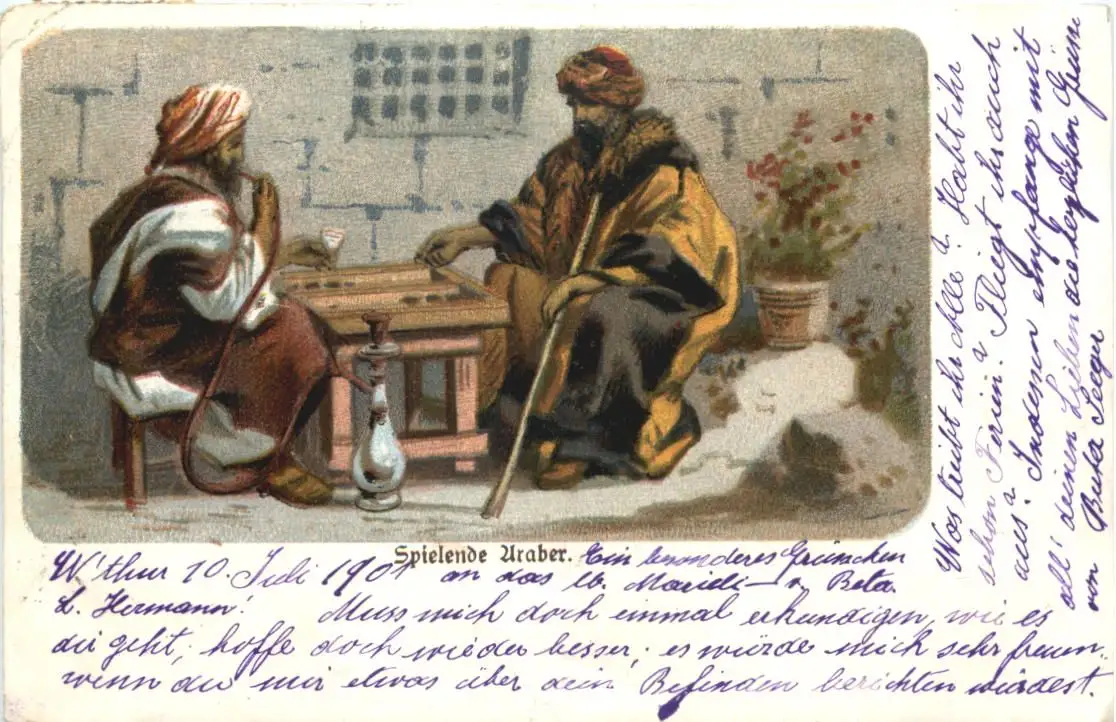 Spielende Araber.
W'thur 10. Juli 1901
Ein besonderes Grüsschen
an das lb. Marieli – v. Beta.
L. Hermann!
Muss mich doch einmal erkundigen, wie es
dir geht, hoffe doch wieder besser; es würde mich sehr freuen,
wenn du mir etwas über dein Befinden berichten würdest.
Was treibt ihr Alle? Habt ihr
schon Ferien? Fliegt ihr auch
aus? Indessen empfange mit
all' deinen Lieben die herzlichen Grüsse
von Berta Seeger